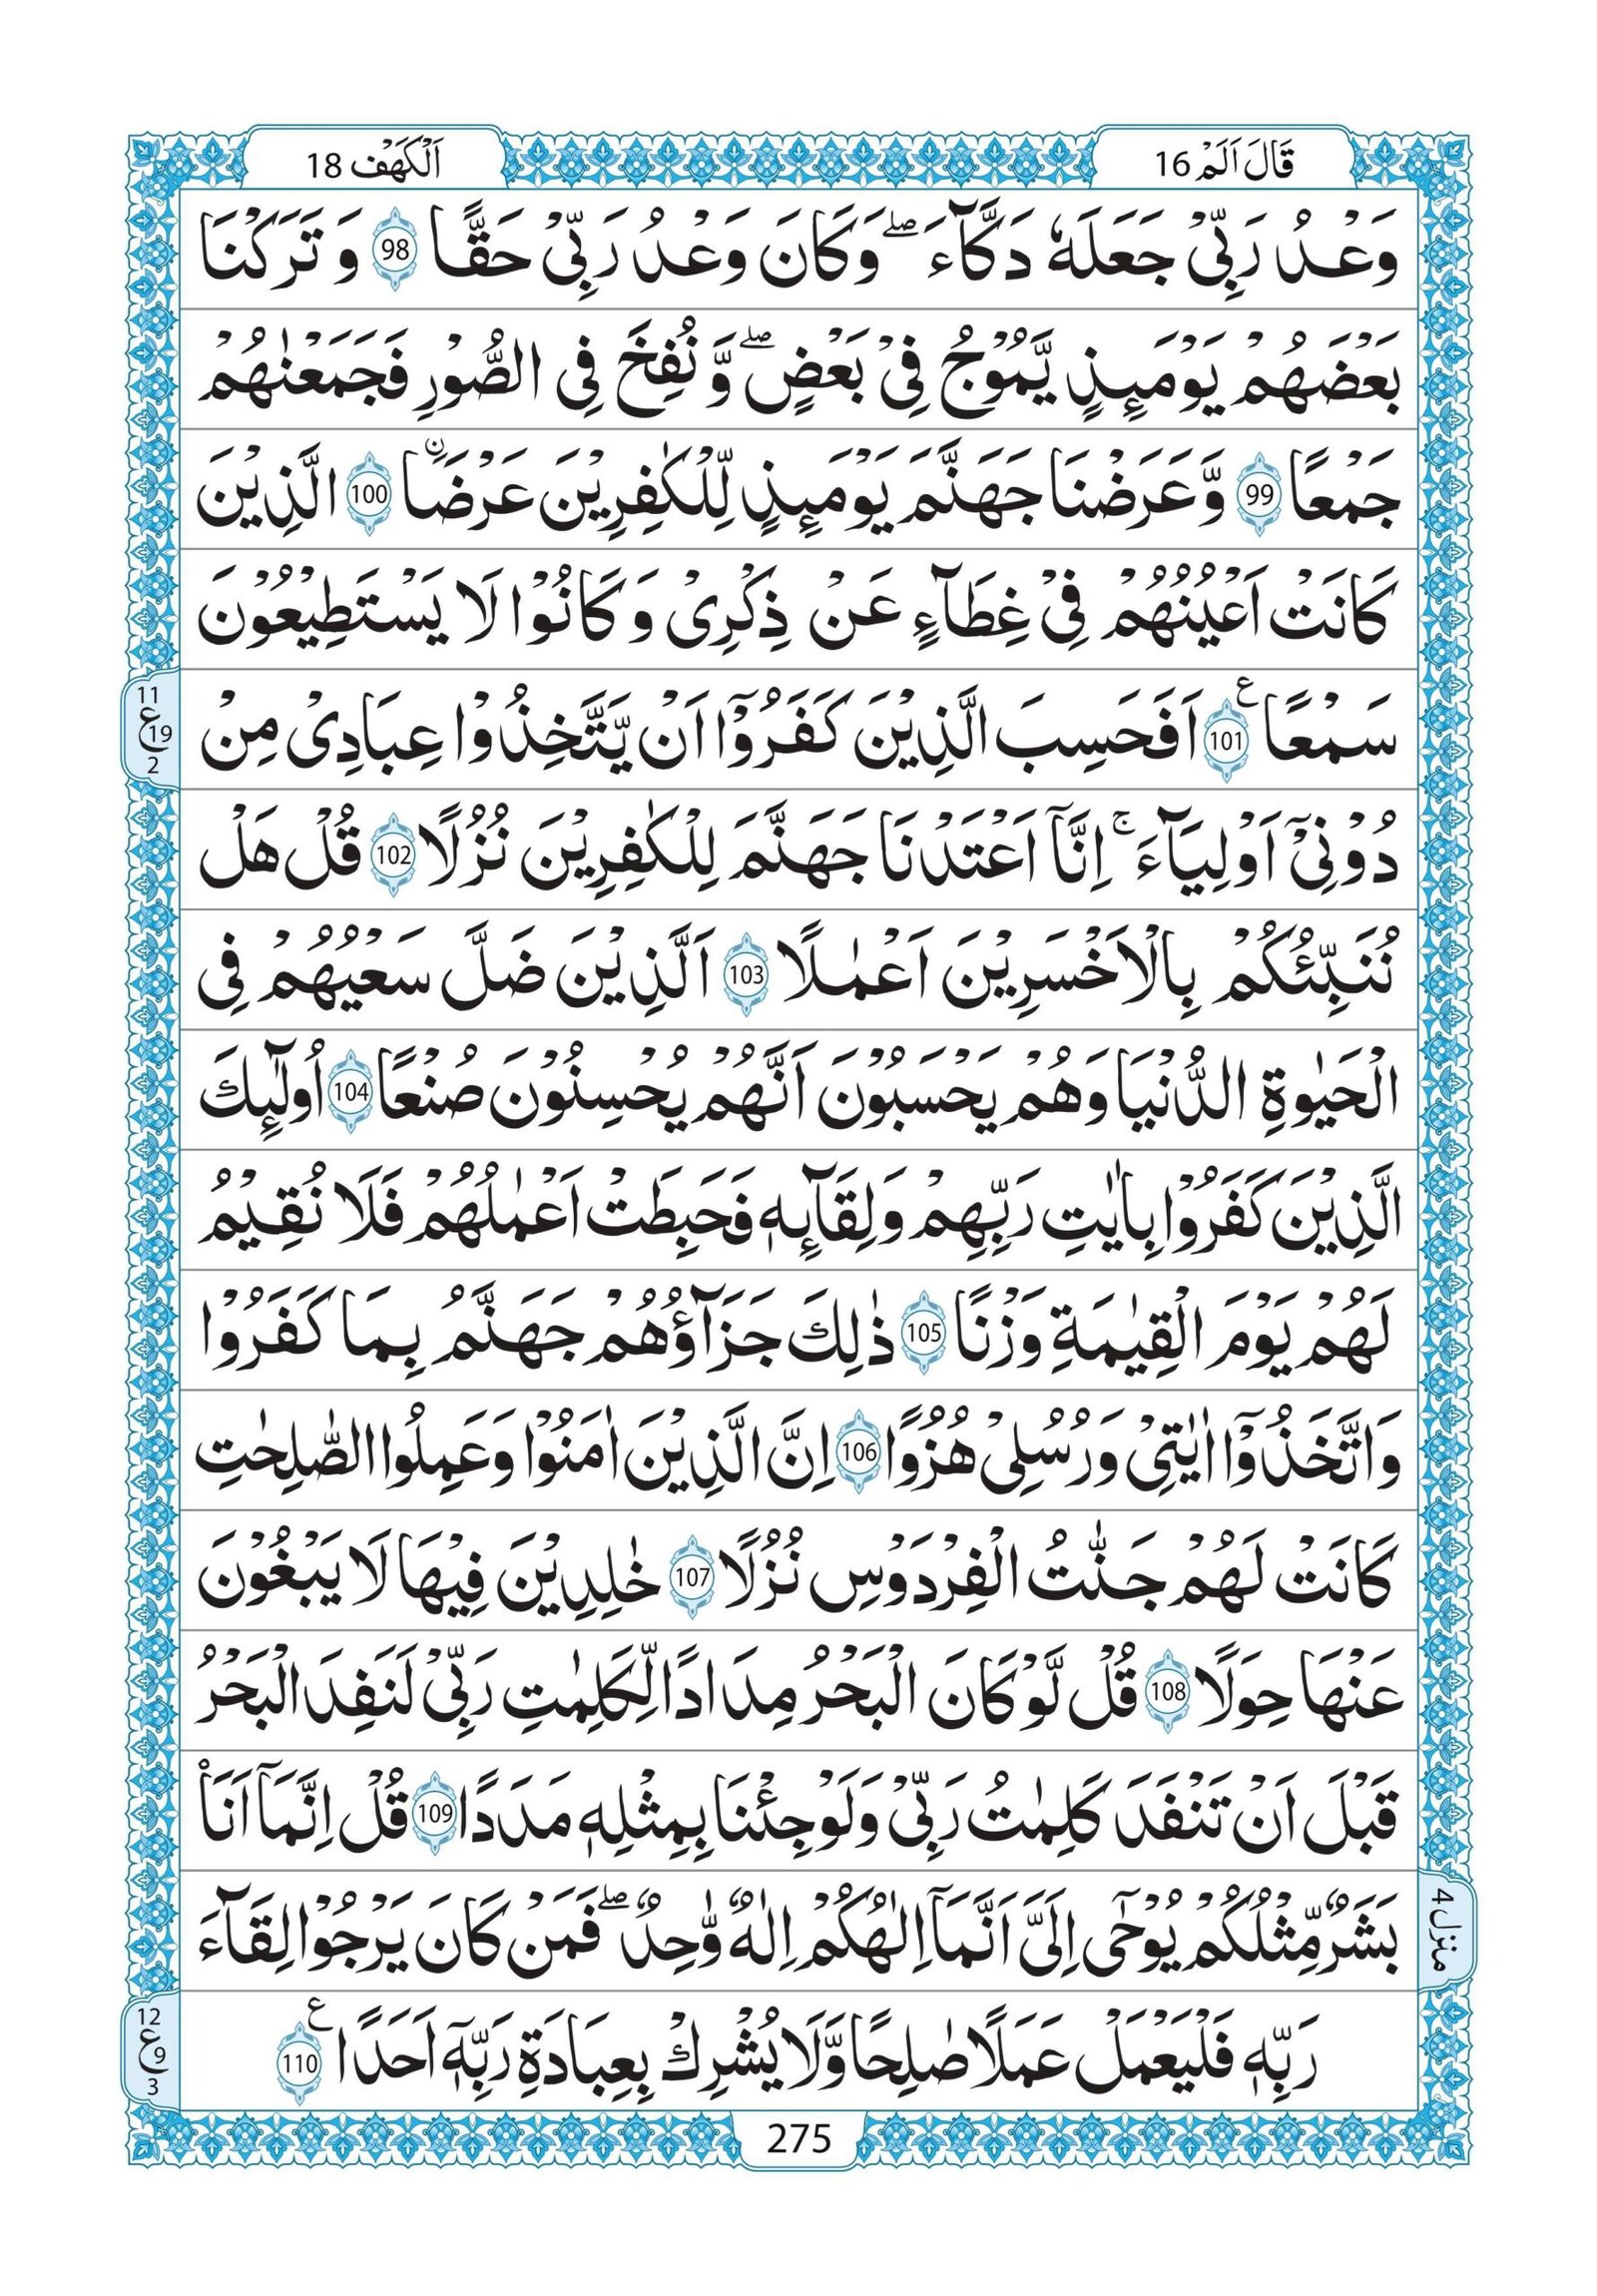 قَالَ اَلَمْ 16
اَلْكَهَف 18
وَعْدُ رَبِّیْ جَعَلَهٗ دَكَّآءَ ۖ وَكَانَ وَعْدُ رَبِّیْ حَقًّا 98 وَ تَرَكْنَا
بَعْضَهُمْ یَوْمَىِٕذٍ یَّمُوْجُ فِیْ بَعْضٍ ۖ وَّ نُفِخَ فِی الصُّوْرِ فَجَمَعْنٰهُمْ
جَمْعًا 99 وَّعَرَضْنَا جَهَنَّمَ یَوْمَىِٕذٍ لِّلْكٰفِرِیْنَ عَرْضَاۙ۬ 100 الَّذِیْنَ
كَانَتْ اَعْیُنُهُمْ فِیْ غِطَآءٍ عَنْ ذِكْرِیْ وَ كَانُوْا لَا یَسْتَطِیْعُوْنَ
سَمْعًا 101 ع اَفَحَسِبَ الَّذِیْنَ كَفَرُوْۤا اَنْ یَّتَّخِذُوْا عِبَادِیْ مِنْ
11
ع 19
2
دُوْنِیْۤ اَوْلِیَآءَ ۚ اِنَّاۤ اَعْتَدْنَا جَهَنَّمَ لِلْكٰفِرِیْنَ نُزُلًا 102 قُلْ هَلْ
نُنَبِّئُكُمْ بِالْاَخْسَرِیْنَ اَعْمٰلًا 103 اَلَّذِیْنَ ضَلَّ سَعْیُهُمْ فِی
الْحَیٰوةِ الدُّنْیَا وَهُمْ یَحْسَبُوْنَ اَنَّهُمْ یُحْسِنُوْنَ صُنْعًا 104 اُولٰٓىِٕكَ
الَّذِیْنَ كَفَرُوْا بِاٰیٰتِ رَبِّهِمْ وَلِقَآىِٕهٖ فَحَبِطَتْ اَعْمٰلُهُمْ فَلَا نُقِیْمُ
لَهُمْ یَوْمَ الْقِیٰمَةِ وَزْنًا 105 ذٰلِكَ جَزَآؤُهُمْ جَهَنَّمُ بِمَا كَفَرُوْا
وَاتَّخَذُوْۤا اٰیٰتِیْ وَرُسُلِیْ هُزُوًا 106 اِنَّ الَّذِیْنَ اٰمَنُوْا وَعَمِلُوا الصّٰلِحٰتِ
كَانَتْ لَهُمْ جَنّٰتُ الْفِرْدَوْسِ نُزُلًا 107 خٰلِدِیْنَ فِیْهَا لَا یَبْغُوْنَ
عَنْهَا حِوَلًا 108 قُلْ لَّوْ كَانَ الْبَحْرُ مِدَادًا لِّكَلِمٰتِ رَبِّیْ لَنَفِدَ الْبَحْرُ
قَبْلَ اَنْ تَنْفَدَ كَلِمٰتُ رَبِّیْ وَلَوْ جِئْنَا بِمِثْلِهٖ مَدَدًا 109 قُلْ اِنَّمَاۤ اَنَا۠
بَشَرٌ مِّثْلُكُمْ یُوْحٰۤی اِلَیَّ اَنَّمَاۤ اِلٰهُكُمْ اِلٰهٌ وّٰحِدٌ ۖ فَمَنْ كَانَ یَرْجُوْا لِقَآءَ
منزل 4
رَبِّهٖ فَلْیَعْمَلْ عَمَلًا صٰلِحًا وَّلَا یُشْرِكْ بِعِبَادَةِ رَبِّهٖۤ اَحَدًا 110 ع
12
ع 9
3
275